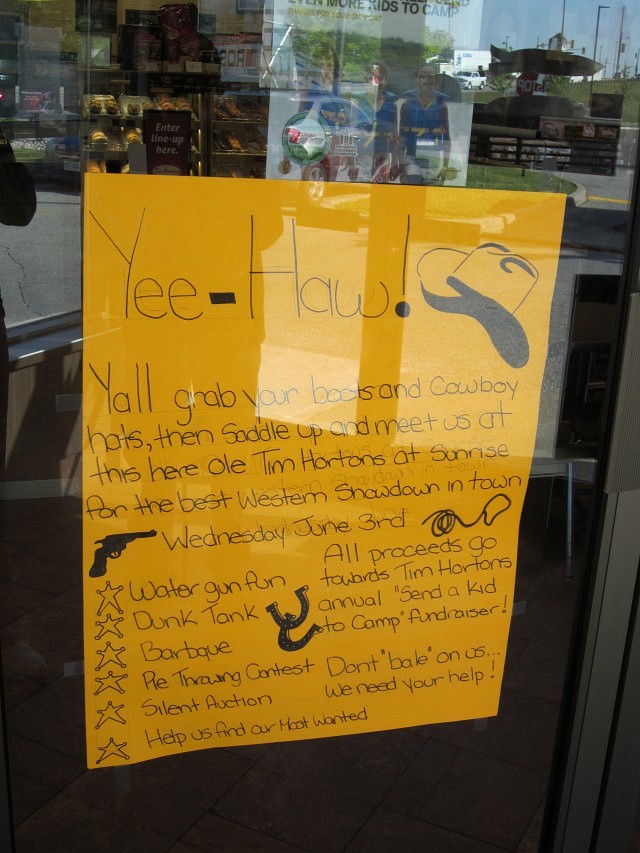 EVEN MORE KIDS TO CAMP
Enter
line-up
here.
STOP
Yee-Haw!
Yall grab your boots and Cowboy
hats, then Saddle up and meet us at
this here Ole Tim Hortons at Sunrise
for the best Western Showdown in town
Wednesday June 3rd
Water gun fun
Dunk Tank
Barbque
Pie Throwing Contest
Silent Auction
Help us find our Most Wanted
All proceeds go
towards Tim Hortons
annual "Send a Kid
to Camp" fundraiser!
Dont "bale" on us...
We need your help!